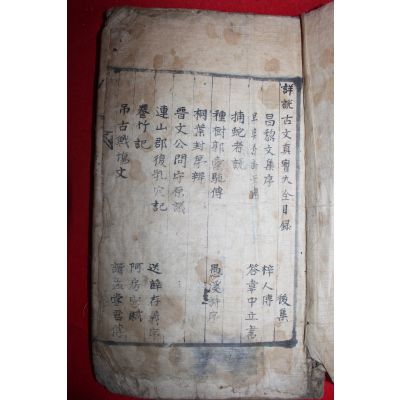 詳說古文真寶大全目錄 後集
昌黎文集序 梓人傳
答韋中立書
捕蛇者說
種樹郭橐駝傳 愚溪詩序
桐葉封弟辨
晉文公問守原議
連山郡復乳穴記 送薛存義序
養竹記 阿房宮賦
吊古戰場文 讀孟嘗君傳